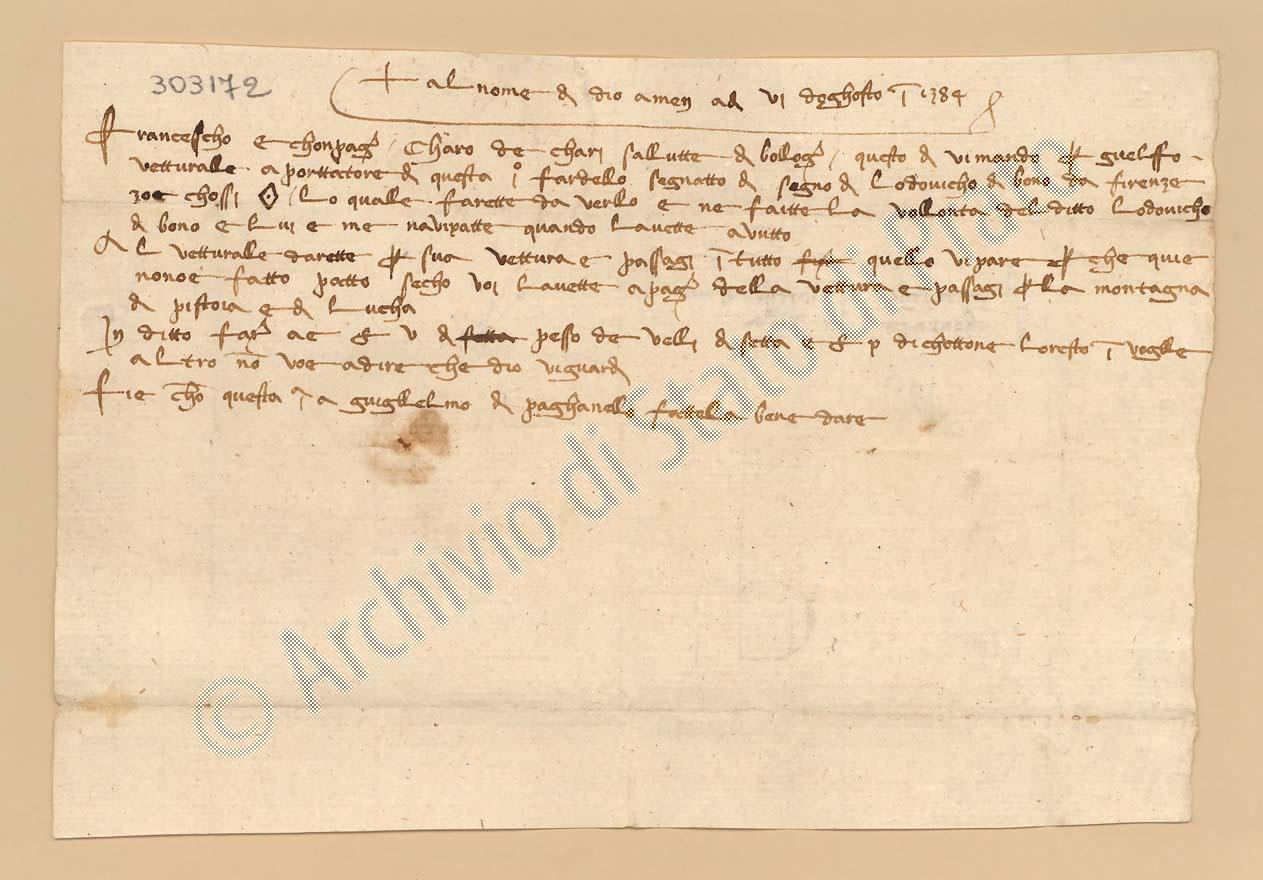 303172
+ al nome d dio amen ad vi d'aghosto 1384
Francescho e chonpag Charo de chari sallutte d bollog questo d vi mando guelffo
vetturalle aporttatore d questa i fardello segnatto d segno d Lodovicho d bono da firenze
zoe chossi ◊ Lo qualle farette da verllo e ne faitte La vollonta del ditto Lodovicho
d bono e Lui e me navipatte quando Lavette avutto
Al vetturalle darette sua vettura e passagi tutto quello vi pare che quie
nonoe fatto patto secho voi Lavette a pag della vettura e passagi La montagna
d pistoia e d Lucha
In ditto far ae v d setta pesso de velli d setta e p di chottone Loresto vogle
altro no voe a dire che dio vi guard
Fie cho questa a guiglelmo d paghanello fattela bene dare
© Archivio di Stato di Prato